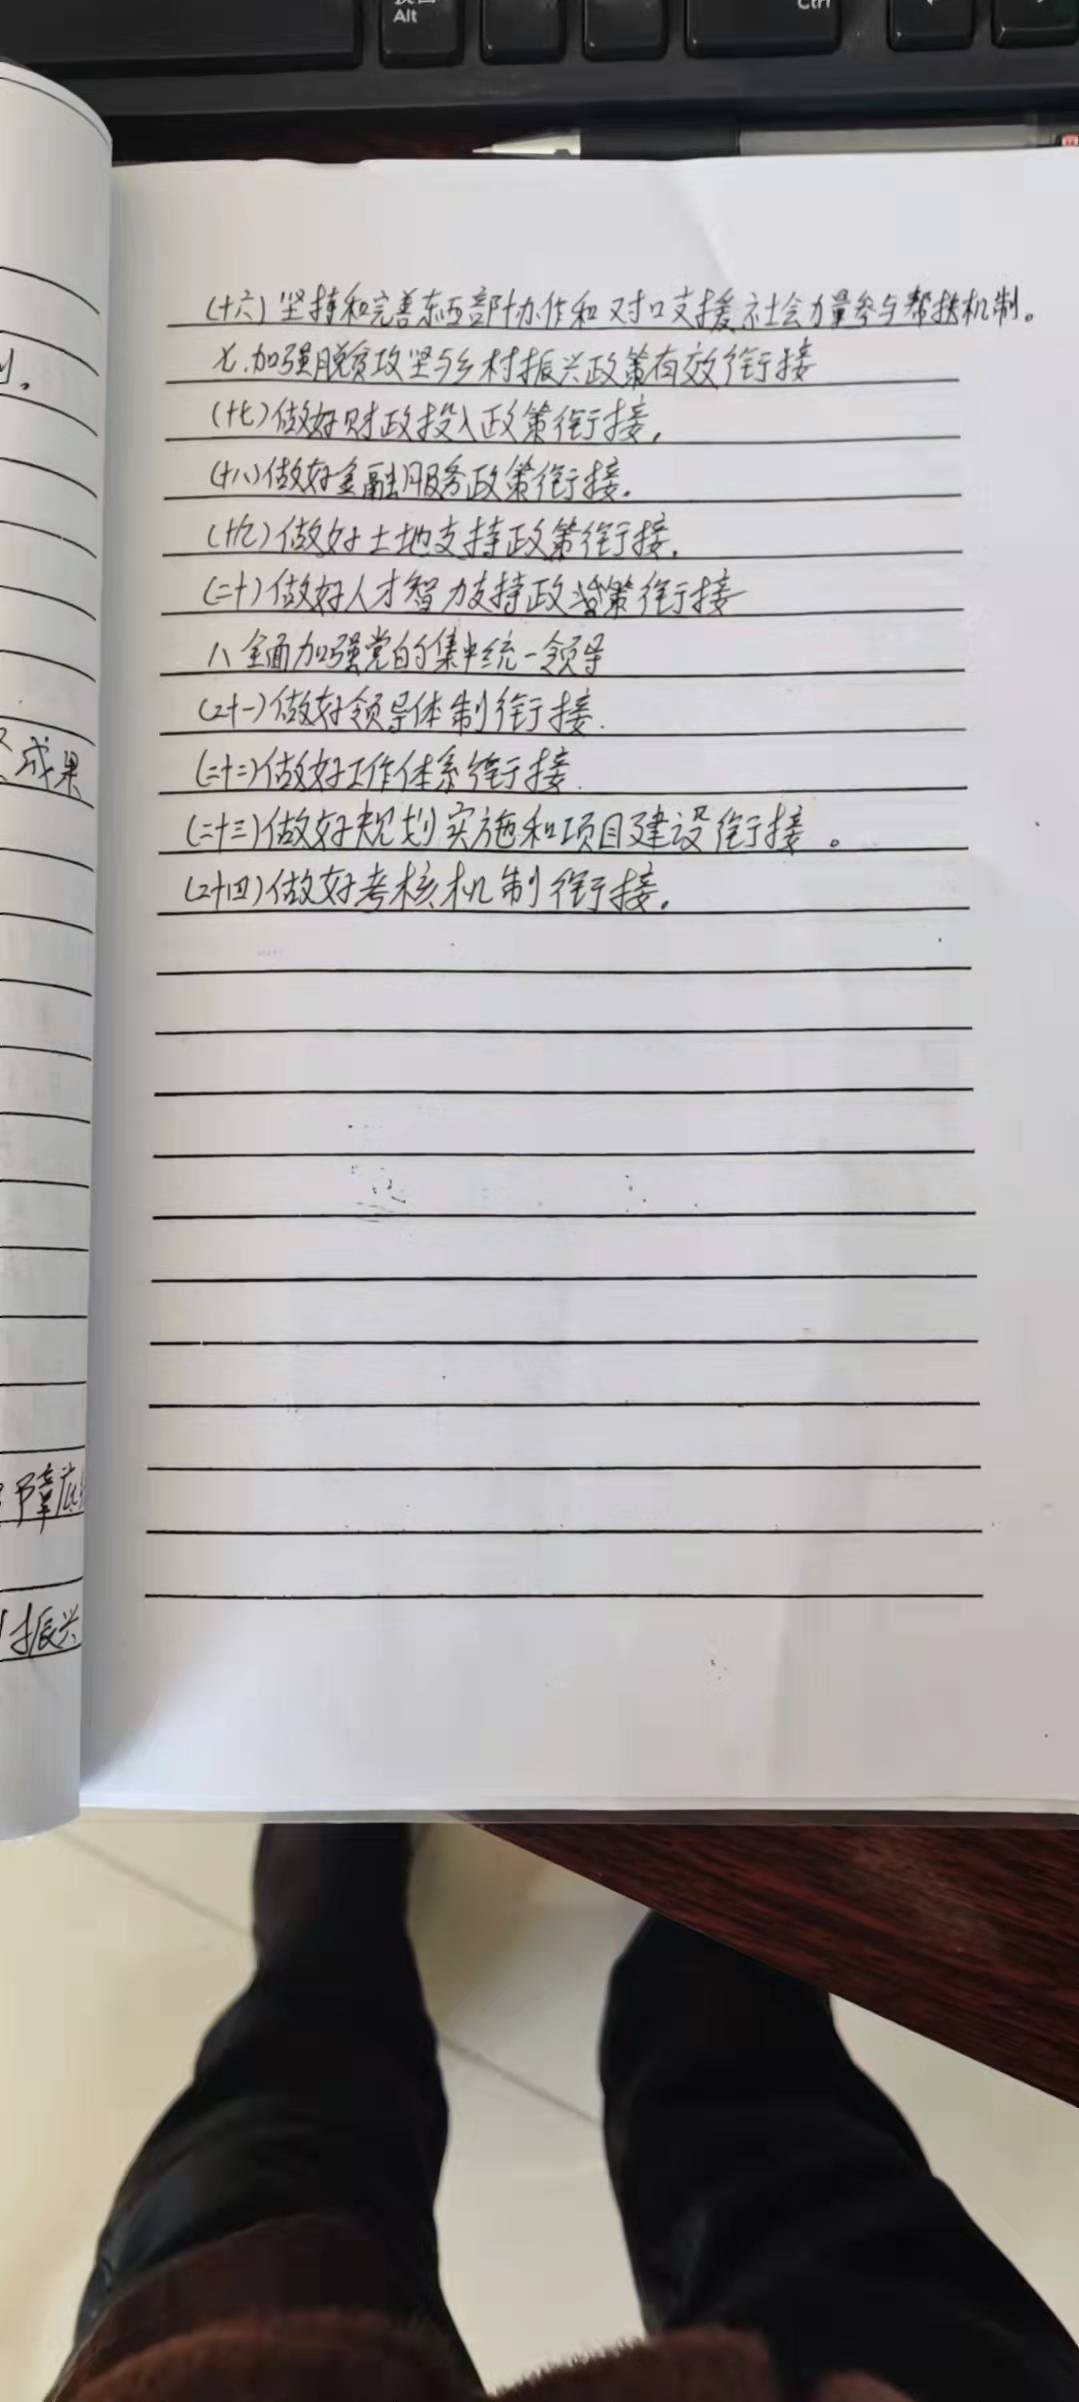 换出
Alt
Ctrl
(十六)坚持和完善东西部协作和对口支援、社会力量参与帮扶机制。
七.加强脱贫攻坚与乡村振兴政策有效衔接
(十七)做好财政投入政策衔接,
(十八)做好金融服务政策衔接.
(十九)做好土地支持政策衔接.
(二十)做好人才智力支持政策衔接
八、全面加强党的集中统一领导
(二十一)做好领导体制衔接.
(二十二)做好工作体系衔接.
(二十三)做好规划实施和项目建设衔接。
(二十四)做好考核机制衔接.
成果
障底
振兴